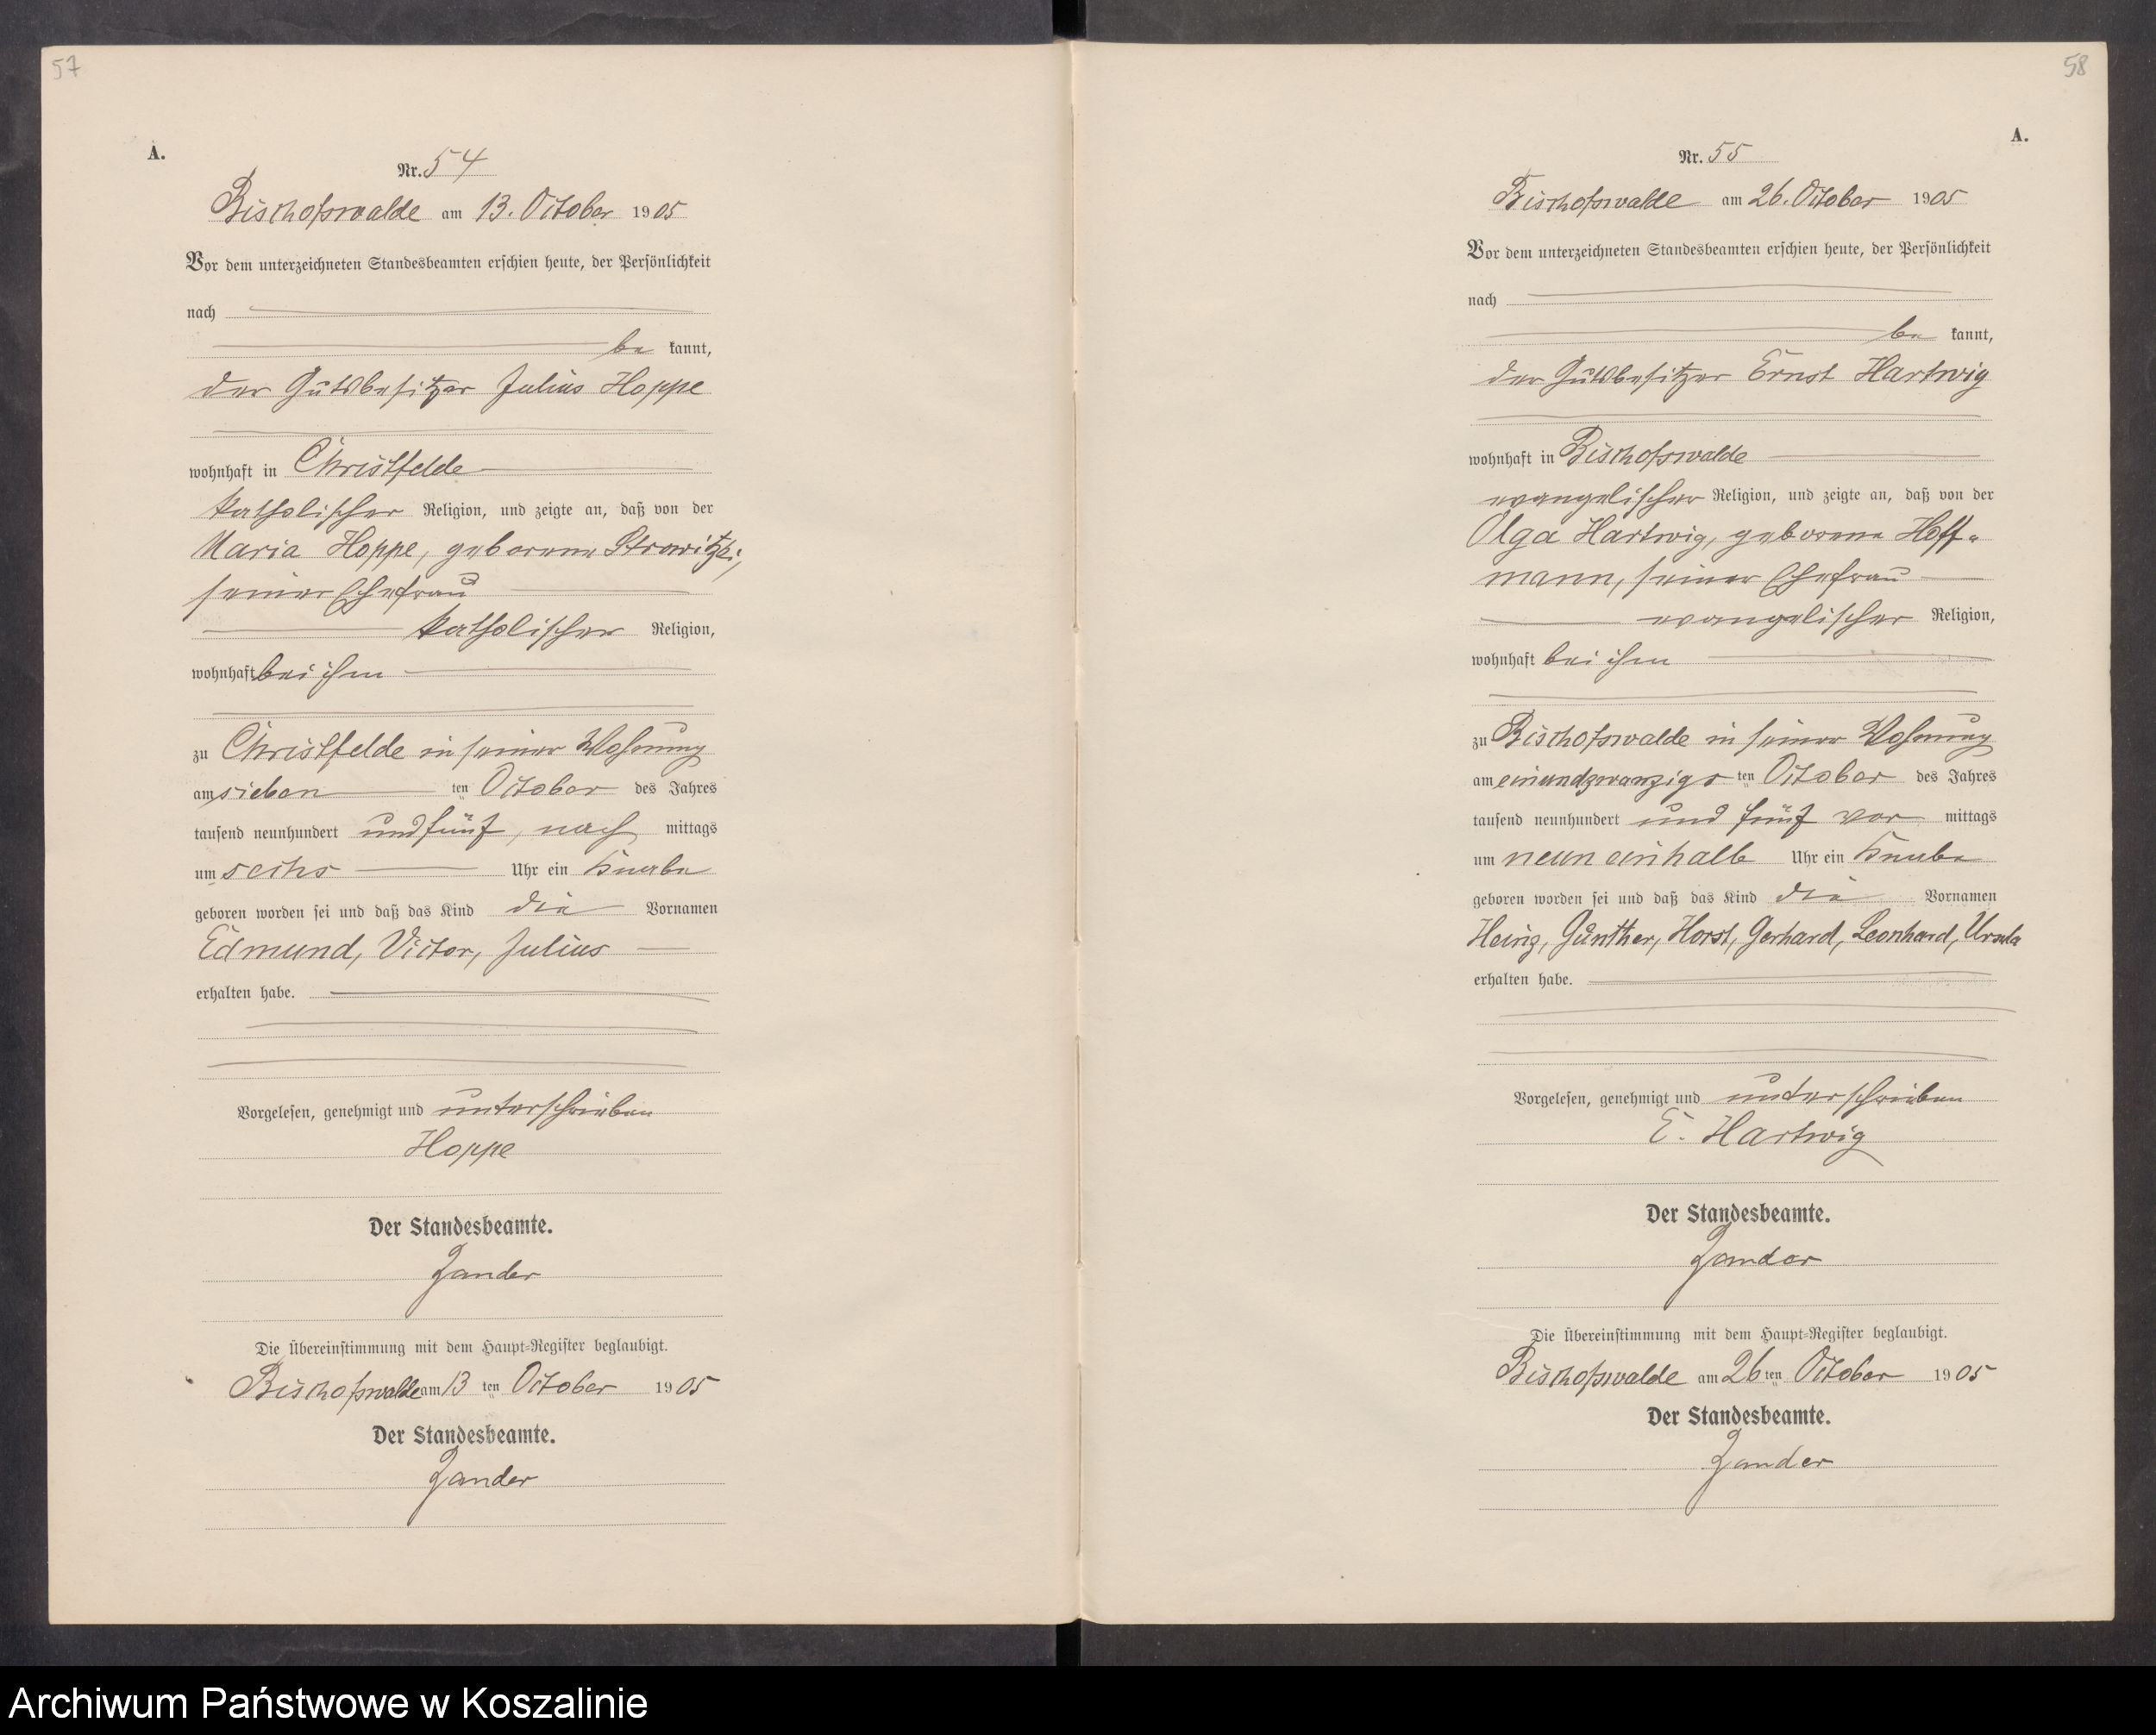 57
A.
Nr. 54
Bischofswalde am 13. October 1905
Vor dem unterzeichneten Standesbeamten erschien heute, der Persönlichkeit
nach
be kannt,
der Gutsbesitzer Julius Hoppe
wohnhaft in Christfelde
katholischer Religion, und zeigte an, daß von der
Maria Hoppe, geborene
seiner Ehefrau
katholischer Religion,
wohnhaft bei ihm
zu Christfelde in seiner Wohnung
am sieben ten October des Jahres
tausend neunhundert und fünf, nach mittags
um sechs Uhr ein Knabe
geboren worden sei und daß das Kind die Vornamen
Edmund, Victor, Julius
erhalten habe.
Vorgelesen, genehmigt und unterschrieben
Hoppe
Der Standesbeamte.
Zander
Die Übereinstimmung mit dem Haupt-Register beglaubigt.
Bischofswalde am 13 ten October 1905
Der Standesbeamte.
Zander
58
A.
Nr. 55
Bischofswalde am 26. October 1905
Vor dem unterzeichneten Standesbeamten erschien heute, der Persönlichkeit
nach
be kannt,
der Gutsbesitzer Ernst Hartwig
wohnhaft in Bischofswalde
evangelischer Religion, und zeigte an, daß von der
Olga Hartwig, geborene Hoff-
mann, seiner Ehefrau
evangelischer Religion,
wohnhaft bei ihm
zu Bischofswalde in seiner Wohnung
am einundzwanzigs ten October des Jahres
tausend neunhundert und fünf vor mittags
um neun einhalb Uhr ein Knabe
geboren worden sei und daß das Kind die Vornamen
Heinz, Günther, Horst, Gerhard, Leonhard, Ursula
erhalten habe.
Vorgelesen, genehmigt und unterschrieben
E. Hartwig
Der Standesbeamte.
Zander
Die Übereinstimmung mit dem Haupt-Register beglaubigt.
Bischofswalde am 26 ten October 1905
Der Standesbeamte.
Zander
Archiwum Państwowe w Koszalinie